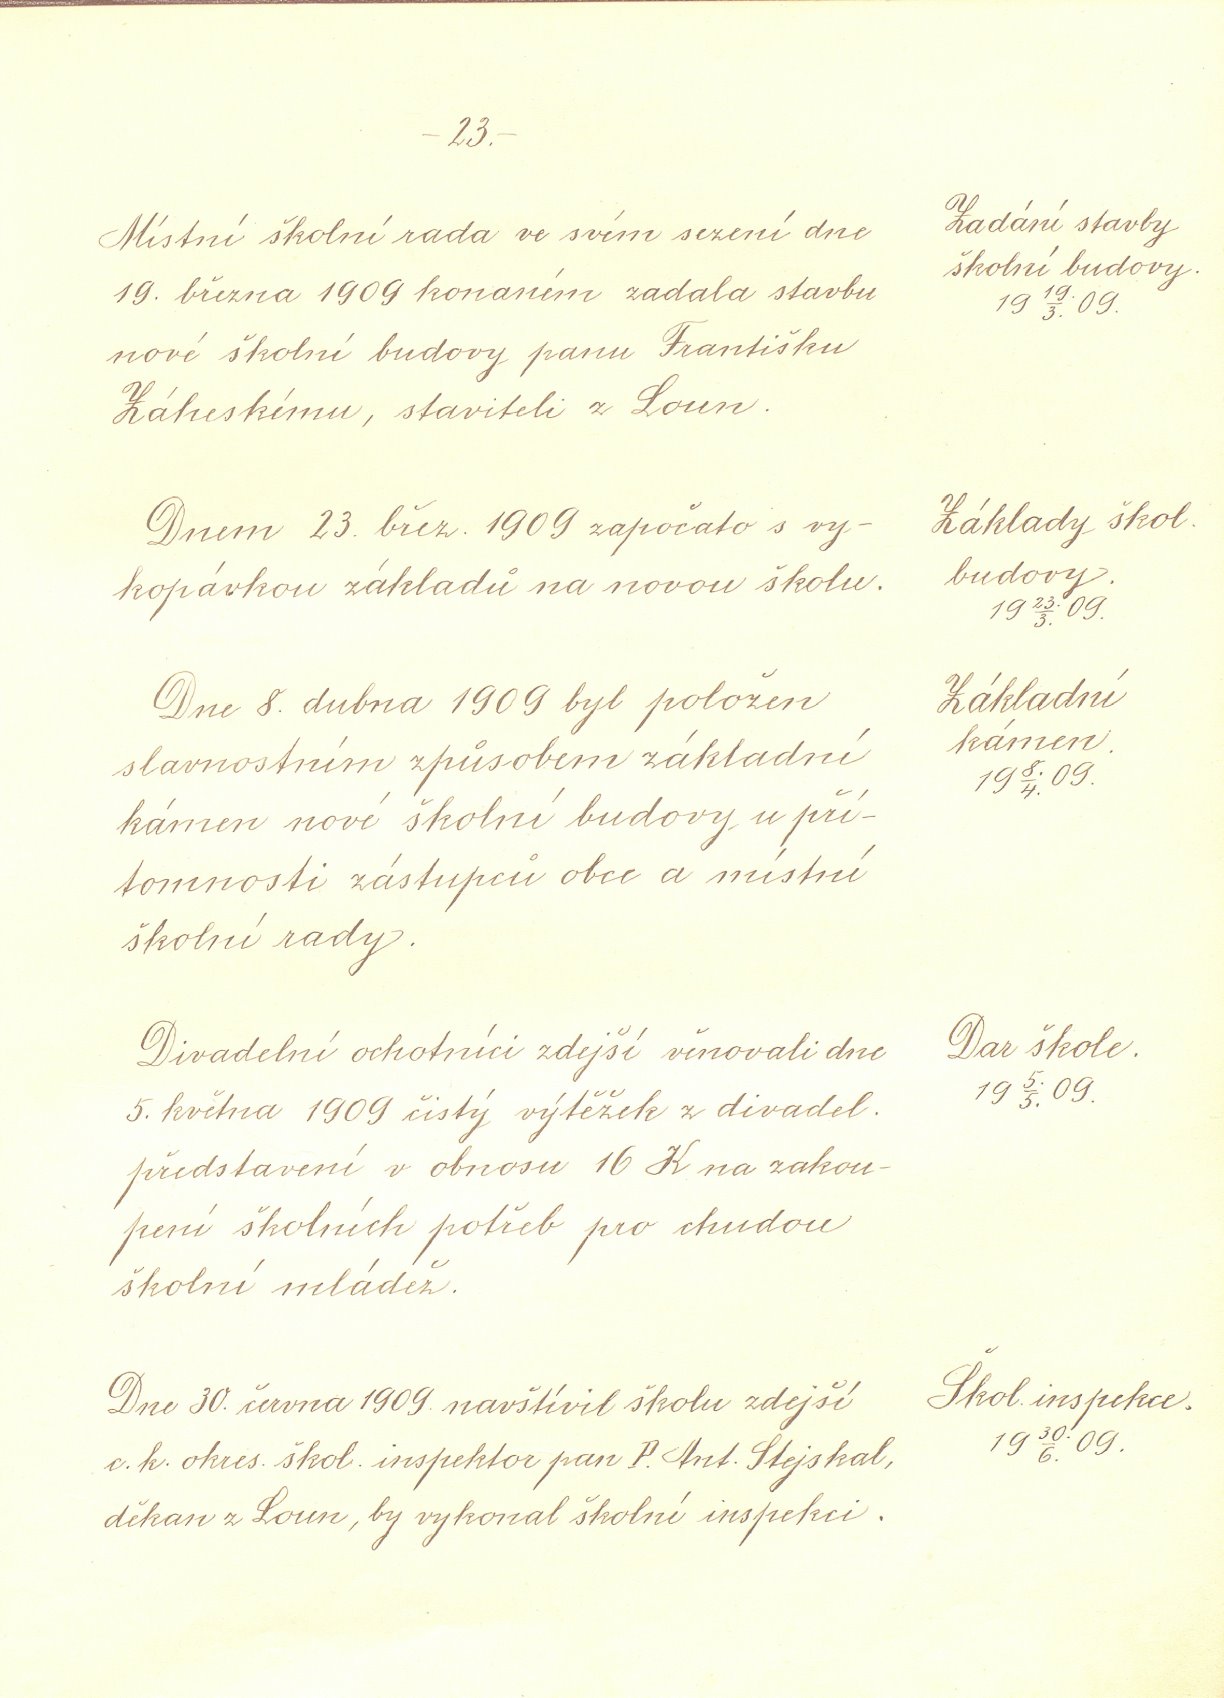 – 23. –
Místní školní rada ve svém sezení dne
19. března 1909 konaném zadala stavbu
nové školní budovy panu Františku
Záheskému, staviteli z Loun.
Zadání stavby
školní budovy.
19 19./3. 09.
Dnem 23. břez. 1909 započato s vy-
kopávkou základů na novou školu.
Základy škol.
budovy.
19 23./3. 09.
Dne 8. dubna 1909 byl položen
slavnostním způsobem základní
kámen nové školní budovy u pří-
tomnosti zástupců obce a místní
školní rady.
Základní
kámen.
19 8./4. 09.
Divadelní ochotníci zdejší věnovali dne
5. května 1909 čistý výtěžek z divadel.
představení v obnosu 16 K na zakou-
pení školních potřeb pro chudou
školní mládež.
Dar škole.
19 5./5. 09.
Dne 30. června 1909 navštívil školu zdejší
c. k. okres. škol. inspektor pan P. Ant. Stejskal,
děkan z Loun, by vykonal školní inspekci.
Škol. inspekce.
19 30./6. 09.